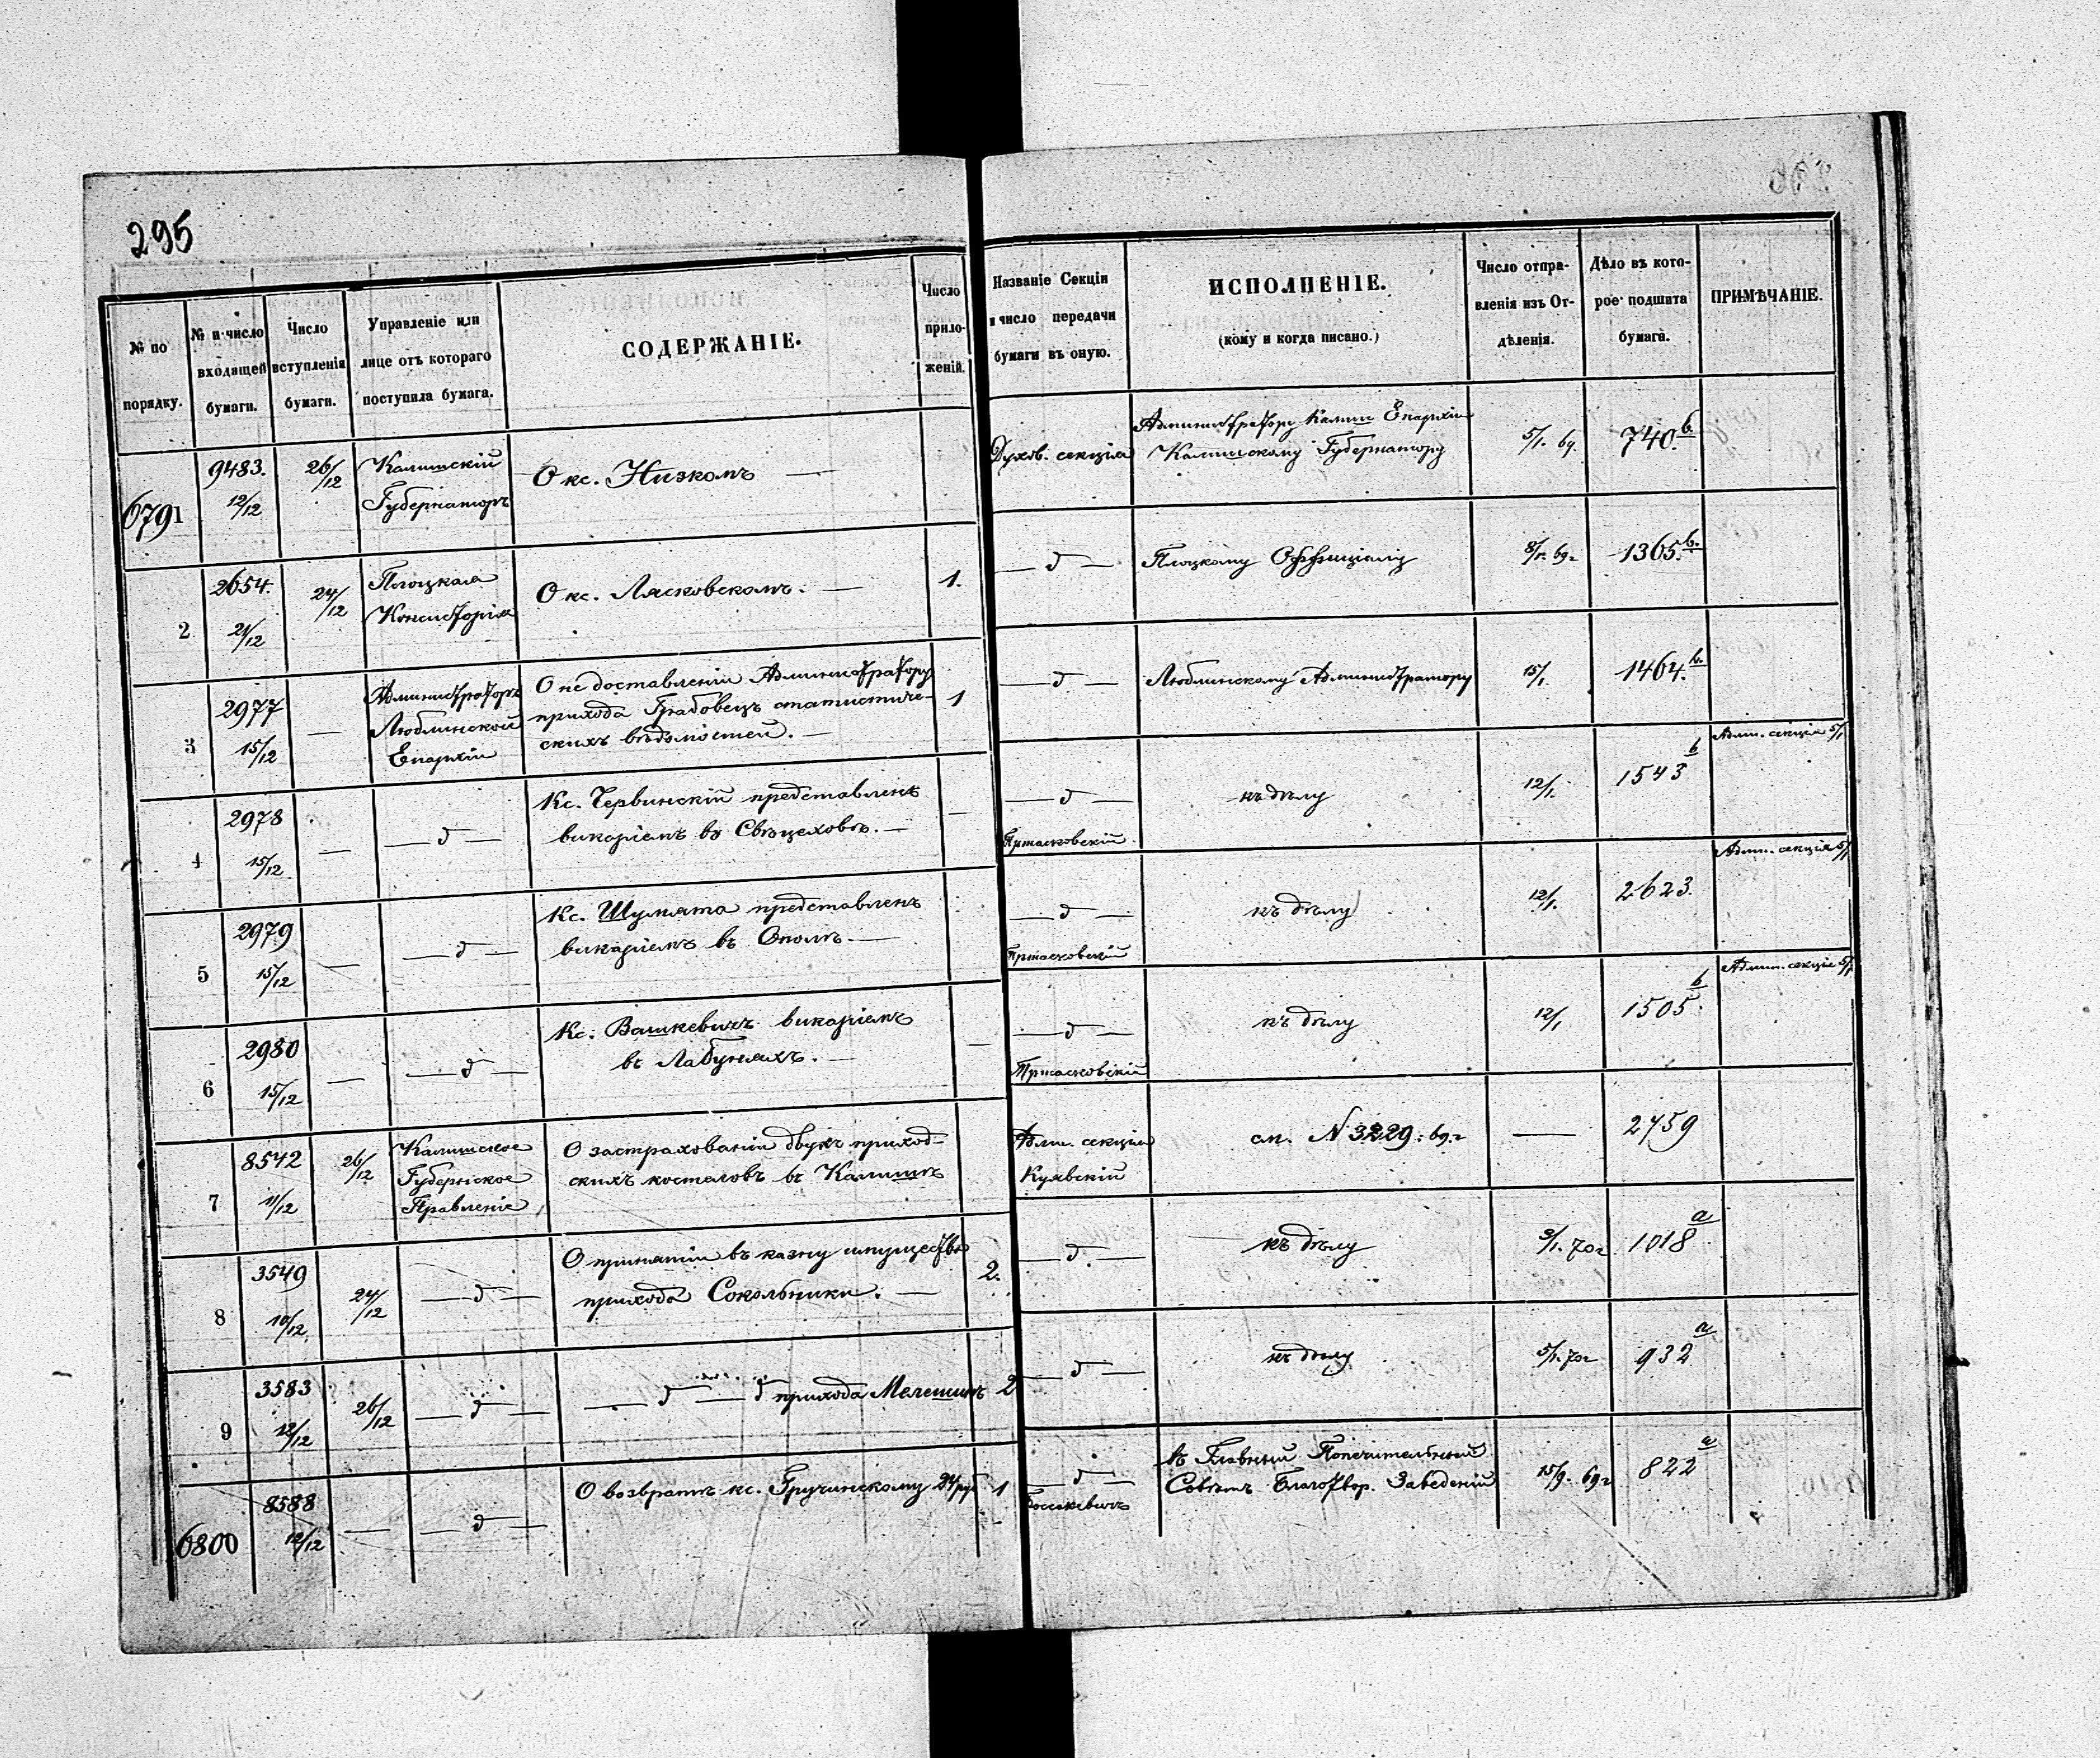 295
№ по порядку.
№ и число входящей бумаги.
Число вступленія бумаги.
Управленіе или лице отъ котораго поступила бумага.
СОДЕРЖАНІЕ.
Число приложеній.
Названіе Секціи и число передачи бумаги въ оную.
ИСПОЛНЕНІЕ.
(кому и когда писано.)
Число отправленія изъ Отдѣленія.
Дѣло въ которое подшита бумага.
ПРИМѢЧАНІЕ.
6791
9483.
12/12
26/12
Калишскій
Губернаторъ
О кс. Низкомъ —
Духов. секція
Администратору Калиш Епархіи
Калишскому Губернатору
5/1. 69.
740.b
2
2654.
21/12
24/12
Плоцкая
Консисторія
О кс. Лясковскомъ. —
1.
— д —
Плоцкому Оффиціалу
8/1. 69 г
1365.b.
3
2977
15/12
—
Администраторъ
Люблинской
Епархіи
О не доставленіи Администратору
прихода Грабовецъ статистиче-
скихъ вѣдомостей. —
1
— д —
Люблинскому Администратору
15/1.
1464.b.
4
2978
15/12
—
— д —
Кс. Червинскій представленъ
викаріемъ въ Свѣцеховѣ. —
—
— д —
Пршасковскій
къ дѣлу
12/1.
1543 b
Адми. секція 5/1
5
2979
15/12
—
— д —
Кс. Шумята представленъ
викаріемъ въ Ополѣ. —
— д —
Пршасковскій
къ дѣлу
12/1.
2623.
Адми. секція 5/1
6
2980
15/12
—
— д —
Кс. Вашкевичъ викаріемъ
въ Лабуняхъ. —
—
— д —
Пршасковскій
къ дѣлу
12/1
1505. b
Адми. секція 5/1
7
8542
11/12
26/12
Калишское
Губернское
Правленіе
О застрахованіи двухъ приход-
скихъ костеловъ въ Калишѣ
Адми. секція
Куявскій
см. N 3229: 69 г
—
2759
8
3549
10/12.
24/12
— д —
О принятіи въ казну имущества
прихода Сокольники. —
2.
— д —
къ дѣлу
3/1. 70 г
1018 a
9
3583
12/12
26/12
— д —
— д — д прихода Малешинъ
2
— д —
къ дѣлу
5/1. 70 г
932 a
6800
8588
12/12
—
— д —
О возвратѣ кс. Гручинскому 24 руб
1
— д —
въ Главный Попечительный
Совѣтъ Благотвор. Заведеній
15/9. 69 г
822 a